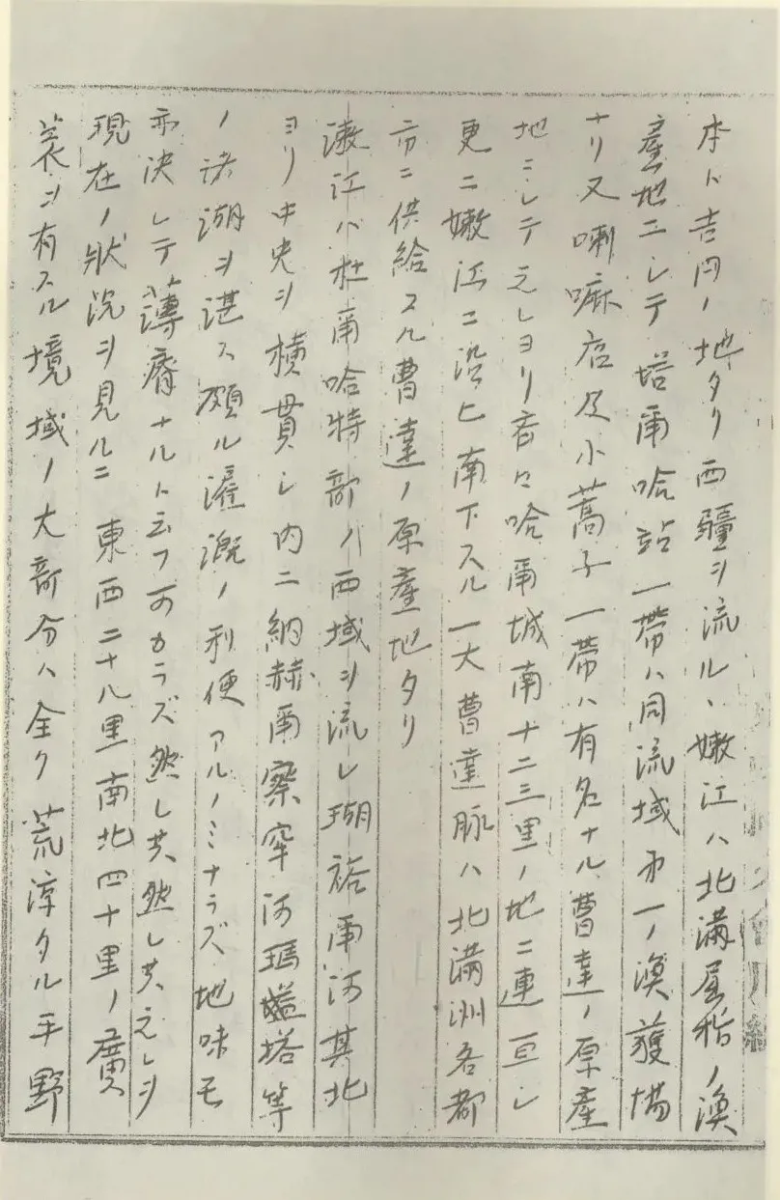 本ト吉円ノ地タリ西疆ヲ流ルヽ嫩江ハ北満屈指ノ漁
産地ニシテ塔爾哈站一帯ハ同流域第一ノ漁獲場
ナリ又喇嘛店及小蒿子一帯ハ有名ナル曹達ノ原産
地ニシテ之レヨリ斉々哈爾城南十二三里ノ地ニ連亘シ
更ニ嫩江ニ沿ヒ南下スル一大曹達脈ハ北満洲各都
市ニ供給スル曹達ノ原産地タリ
嫩江ハ杜爾哈特部ノ西域ヲ流レ瑚裕爾河其北
ヨリ中央ヲ横貫シ内ニ納赫爾察罕河瑪塔等
ノ諸湖ヲ湛ヘ頗ル灌漑ノ利便アルノミナラズ地味モ
亦決シテ薄瘠ナルト云フ可カラズ然レ共然レ共之レヲ
現在ノ状況ヲ見ルニ東西二十八里南北四十里ノ廣
袤ヲ有スル境域ノ大部分ハ全ク荒淳タル平野